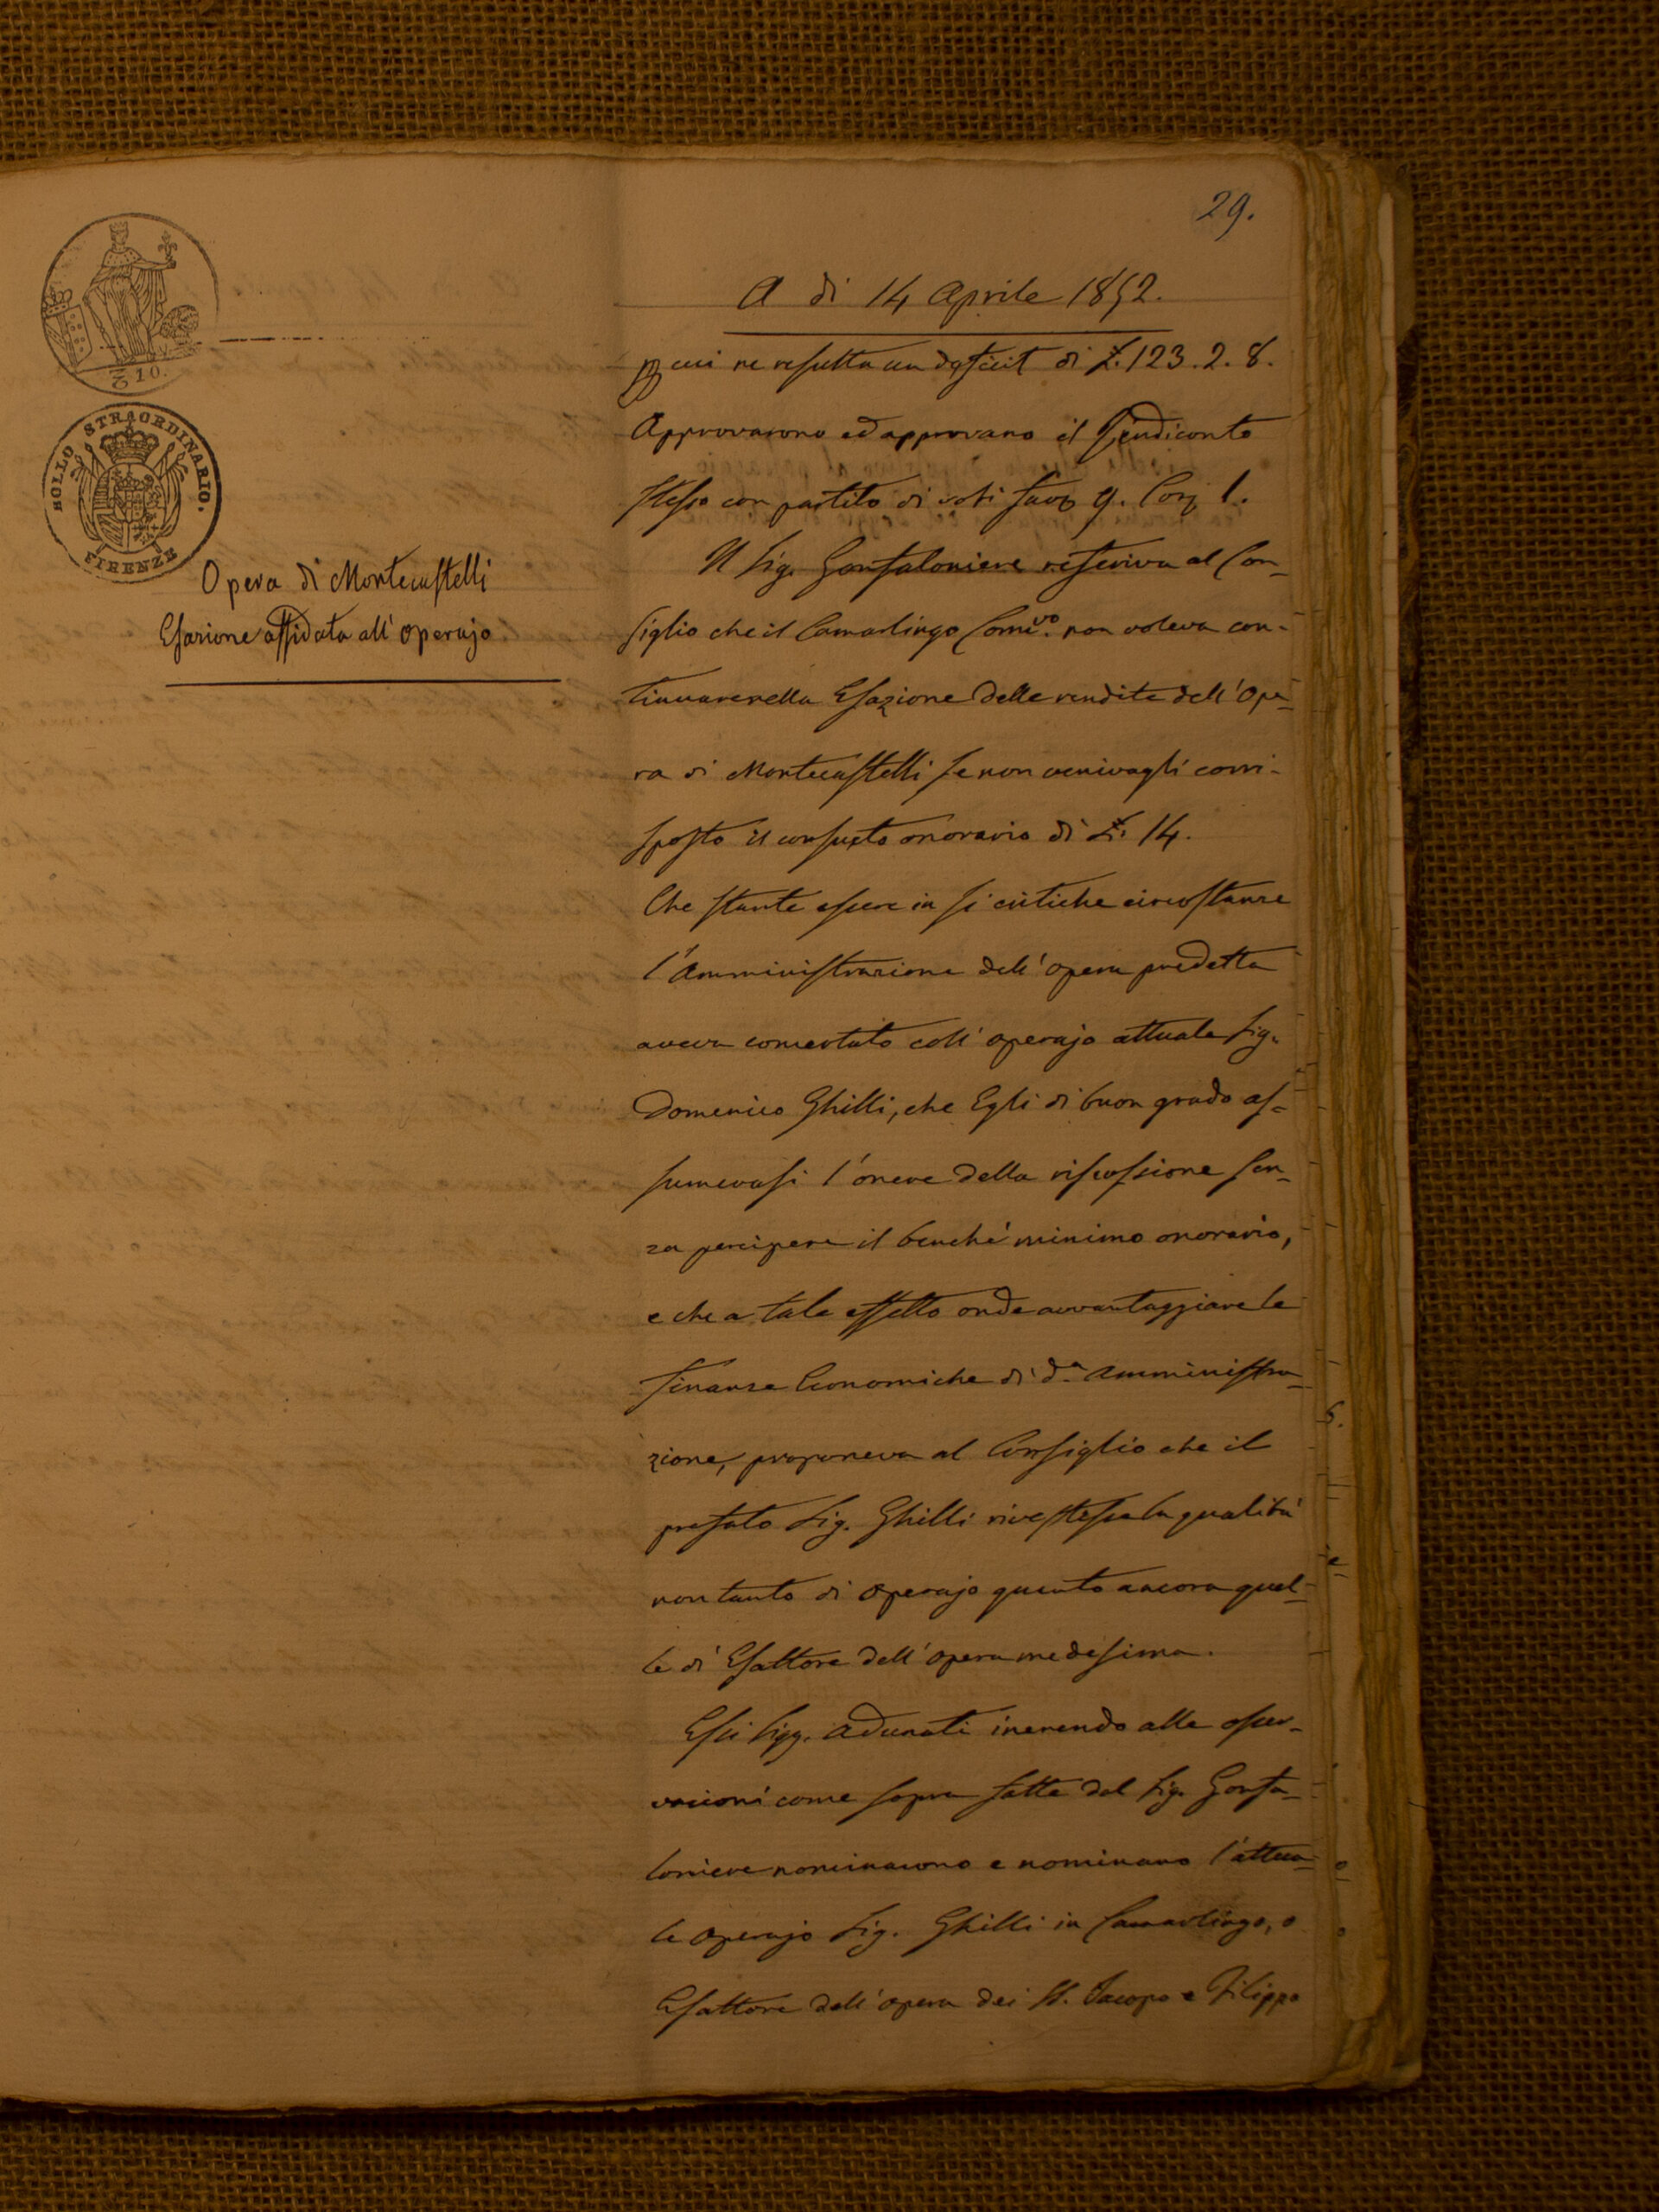 29.
A di 14 Aprile 1852.
cui ne resulta un deficit di £. 123. 2. 8.
Approvarono ed approvano il Rendiconto
stesso con partito di voti fav 9. Con 1.
₰ 10.
SOLLO STRAORDINARIO.
FIRENZE
Opera di Montecastelli
Esazione affidata all'Operajo
Il Sig. Gonfaloniere referiva al Con-
siglio che il Camarlingo Comi.vo non voleva con-
tinuare nella Esazione delle rendite dell'Ope-
ra di Montecastelli se non venivagli corri-
sposto il consueto onorario di £. 14.
Che stante essere in si critiche circostanze
l'Amministrazione dell'opera predetta
aveva concertato coll'operajo attuale Sig.
Domenico Ghilli, che Egli di buon grado as-
sumevasi l'onere della riscossione sen-
za percipere il benché minimo onorario,
e che a tale effetto onde avvantaggiare le
finanze Economiche di d.a Amministra-
zione, proponeva al Consiglio che il
prefato Sig. Ghilli rivestisse la qualità
non tanto di Operajo quanto ancora quel-
le di Esattore dell'opera medesima.
Essi Sigg. Adunati inerendo alle osser-
vazioni come sopra fatte dal Sig. Gonfa-
loniere nominarono e nominano l'attua-
le Operajo Sig. Ghilli in Camarlingo, o
Esattore dell'opera dei SS. Jacopo e Filippo